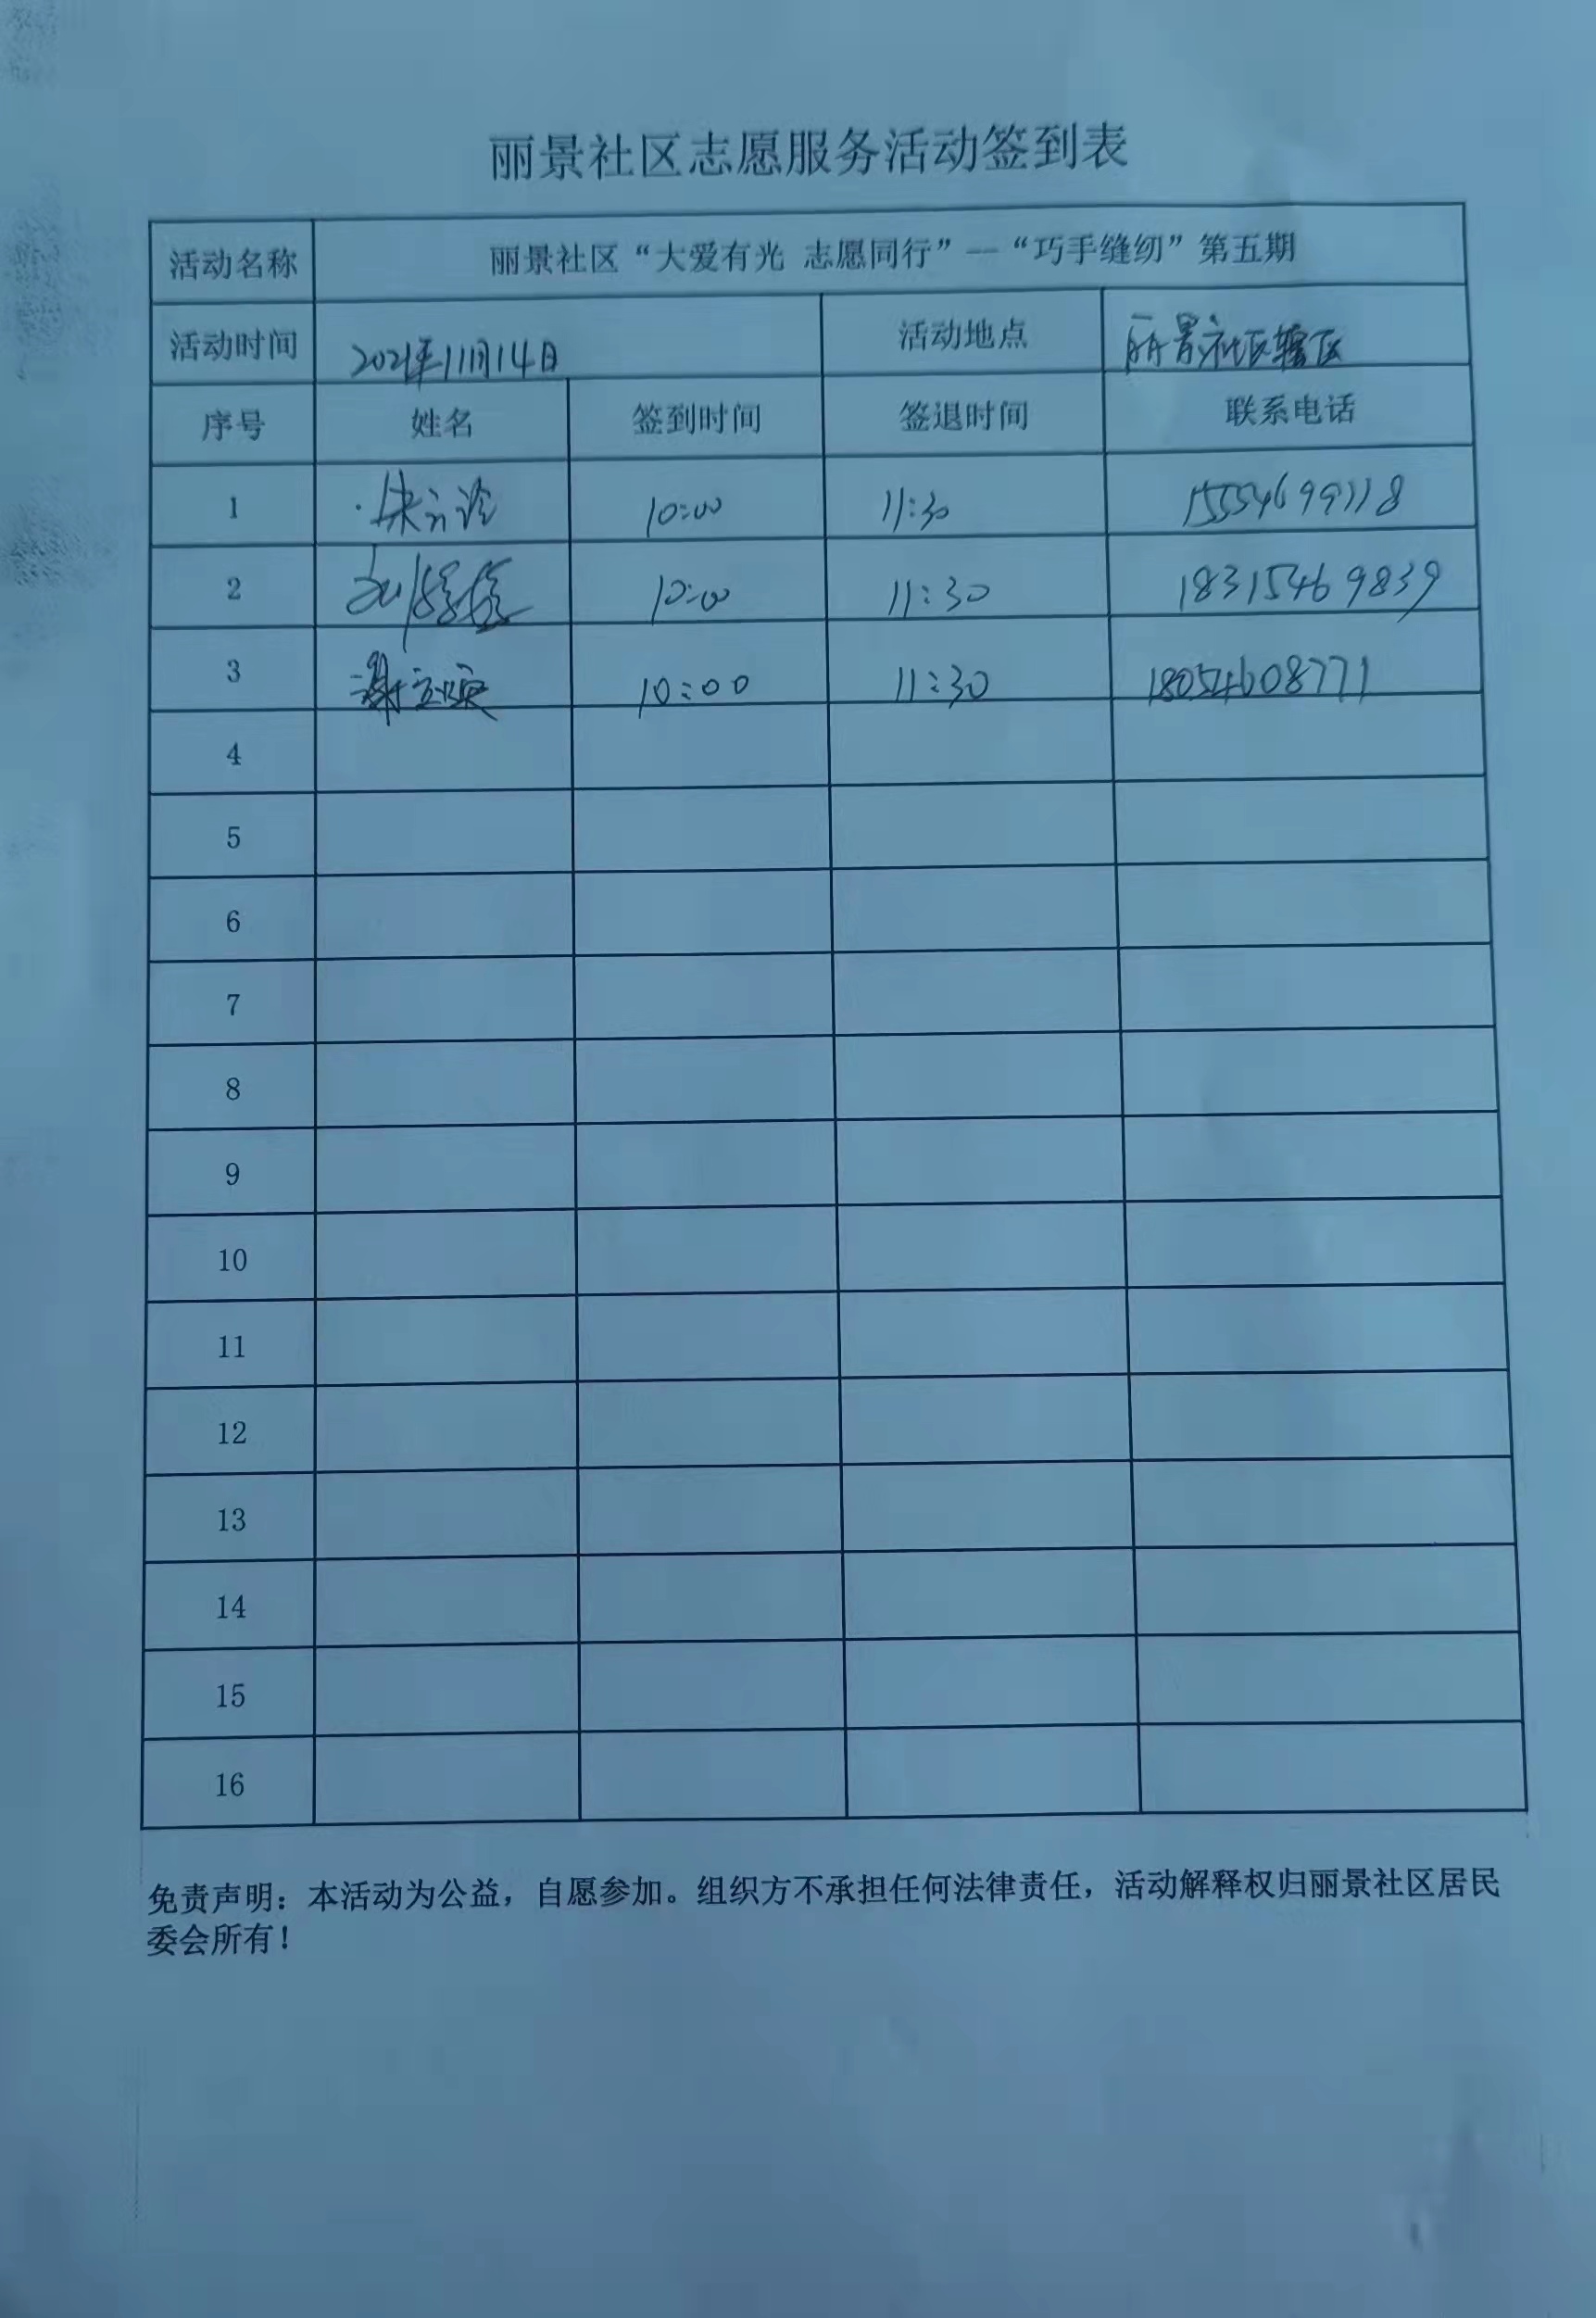 丽景社区志愿服务活动签到表
活动名称 丽景社区“大爱有光 志愿同行”—“巧手缝纫”第五期
活动时间 2021年11月14日 活动地点 丽景社区辖区
序号 姓名 签到时间 签退时间 联系电话
1 10:00 11:30 15554699118
2 10:00 11:30 18315469839
3 谢 10:00 11:30 18054608771
4
5
6
7
8
9
10
11
12
13
14
15
16
免责声明：本活动为公益，自愿参加。组织方不承担任何法律责任，活动解释权归丽景社区居民
委会所有！